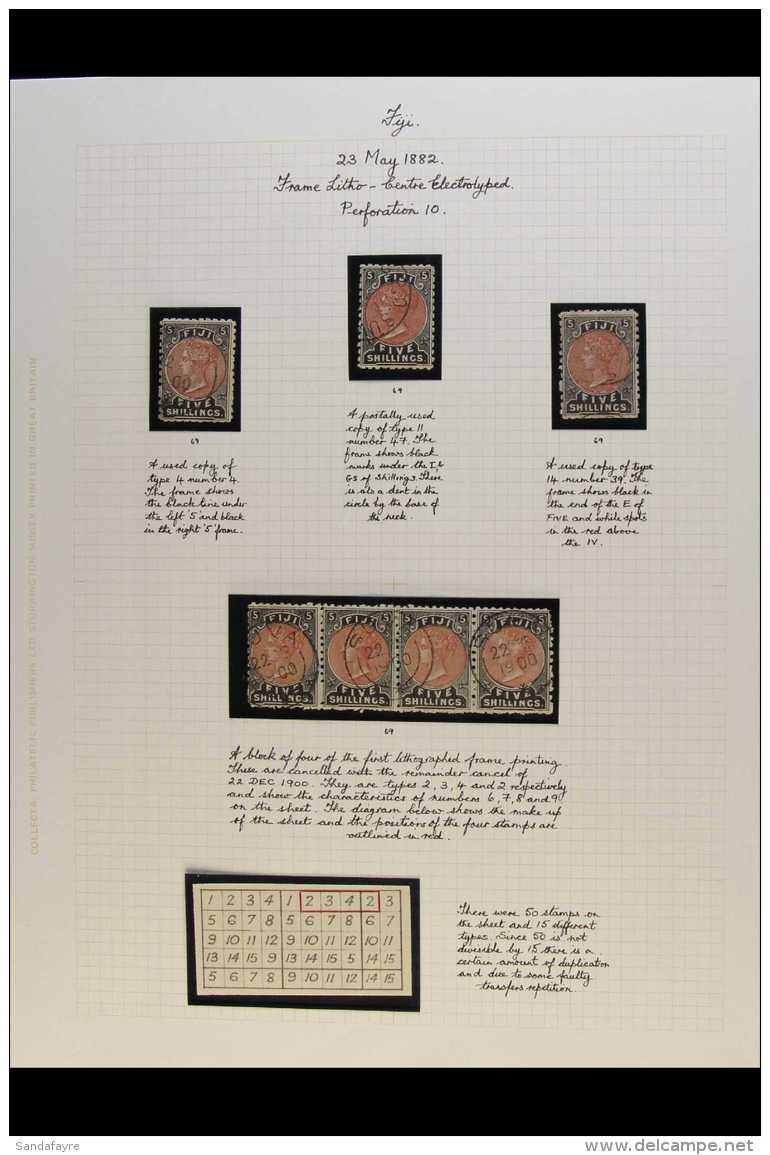 Fiji.
23 May 1882.
Frame Litho - Centre Electrotyped.
Perforation 10.
5 FIJI 5
FIVE
SHILLINGS.
69
A used copy of
type 4 number 4.
The frame shows
the black line under
the left '5' and black
in the right '5' frame.
5 FIJI 5
FIVE
SHILLINGS.
69
A postally used
copy of type 11
number 47. The
frame shows black
marks under the I, &
GS of Shillings. There
is also a dent in the
circle by the base of
the neck.
5 FIJI 5
FIVE
SHILLINGS.
69
A used copy of type
14 number 39. The
frame shows black in
the end of the E of
FIVE and white spots
in the red above
the IV.
FIJI FIJI FIJI FIJI
FIVE FIVE FIVE FIVE
SHILLINGS. SHILLINGS. SHILLINGS. SHILLINGS.
69
A block of four of the first lithographed frame printing.
These are cancelled with the remainder cancel of
22 DEC 1900. They are types 2, 3, 4 and 2 respectively
and show the characteristics of numbers 6, 7, 8 and 9
on the sheet. The diagram below shows the make up
of the sheet and the positions of the four stamps are
outlined in red.
1 2 3 4 1 2 3 4 2 3
5 6 7 8 5 6 7 8 6 7
9 10 11 12 9 10 11 12 10 11
13 14 15 13 14 15 5 14 15
5 6 7 8 9 10 11 12 14 15
There were 50 stamps on
the sheet and 15 different
types. Since 50 is not
divisible by 15 there is a
certain amount of duplication
and due to some faulty
transfers repetition.
COLLECTA PHILATELIC PUBLISHERS LTD STORRINGTON SUSSEX PRINTED IN GREAT BRITAIN
Sandafayre
www.delcampe.net